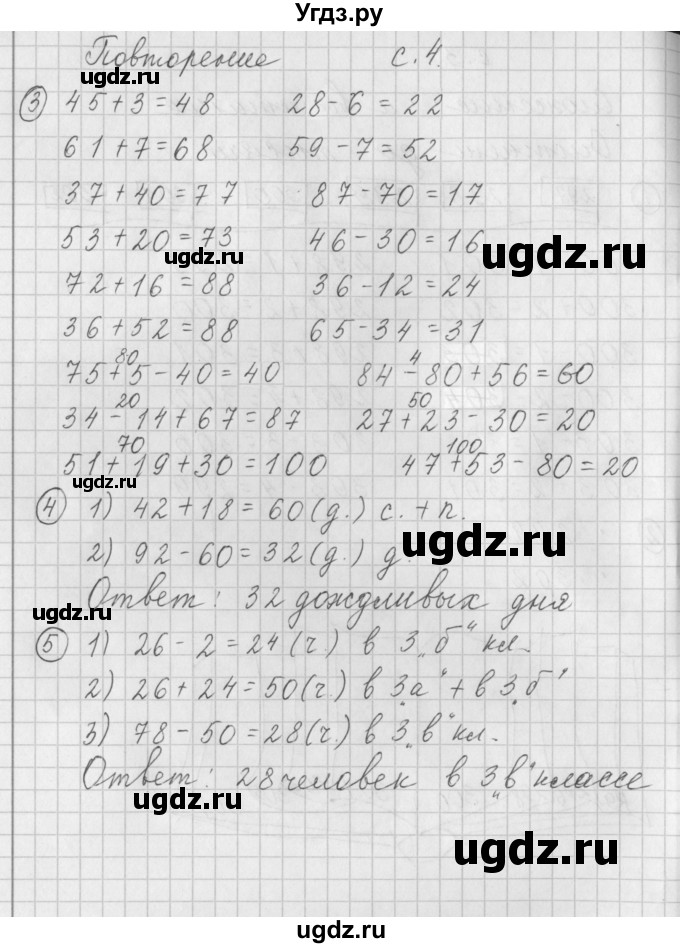 Угдз.ру
Повторение с. 4.
ugdz.ru
③ 45+3=48 28-6=22
61+7=68 59-7=52
37+40=77 87-70=17
53+20=73 46-30=16
ugdz.ru ugdz.ru
72+16=88 36-12=24
36+52=88 65-34=31
80 4
75+5-40=40 84-80+56=60
20 50
34-14+67=87 27+23-30=20
70 100
51+19+30=100 47+53-80=20
ugdz.ru
④ 1) 42+18=60(д.) с.+п.
2) 92-60=32(д.) д.
ugdz.ru
Ответ: 32 дождливых дня
ugdz.ru
⑤ 1) 26-2=24(ч.) в 3„б" кл.
2) 26+24=50(ч.) в 3„а"+в 3„б"
3) 78-50=28(ч.) в 3„в" кл.
Ответ: 28 человек в 3„в" классе
ugdz.ru
ugdz.ru
ugdz.ru